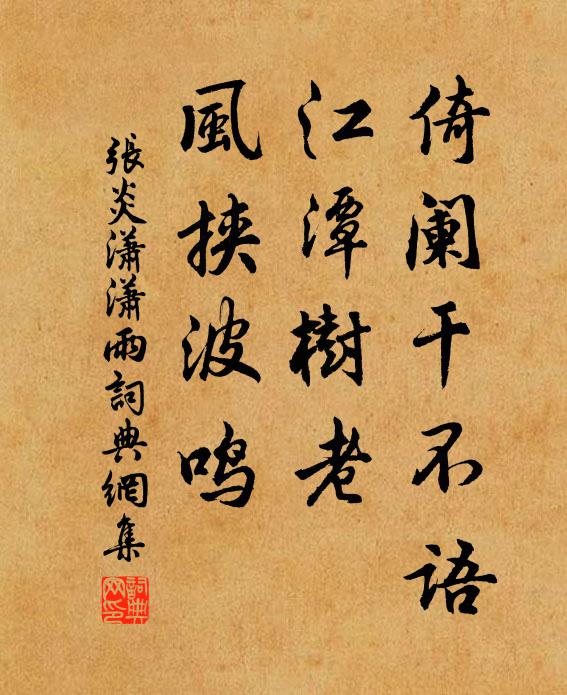 倚阑干不语
江潭樹老
風挟波鸣
張炎瀟瀟雨詞典網集
詞典网印